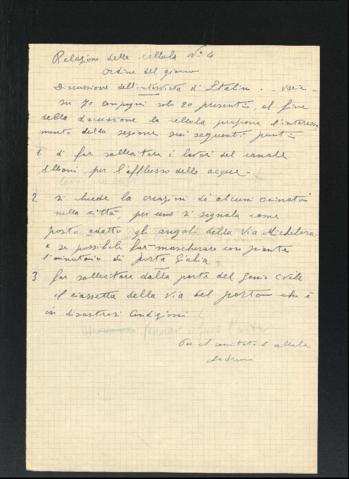 Relazione della cellula N° 4
Ordine del giorno
Discussione dell'intervista di Stalin - varie -
su 70 compagni solo 20 presenti, al fine
della discussione la cellula propone l'interes
mento della sezione sui seguenti punti
1 di far sollecitare i lavori del canale
Albani per l'afflusso delle acque
2 si chiede la creazione di alcuni orinatoi
nella città, per uno si segnala come
posto adatto gli angoli della Via Michelora
e se possibili far mascherare con piante
l'orinatoio di porta Giulia -
3 far sollecitare dalla parte del Genio Civile
il riassetto della Via del porto che è
in disastrose condizioni
Per il comitato di cellula